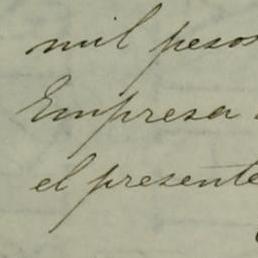 mil pesos
Empresa
el presente